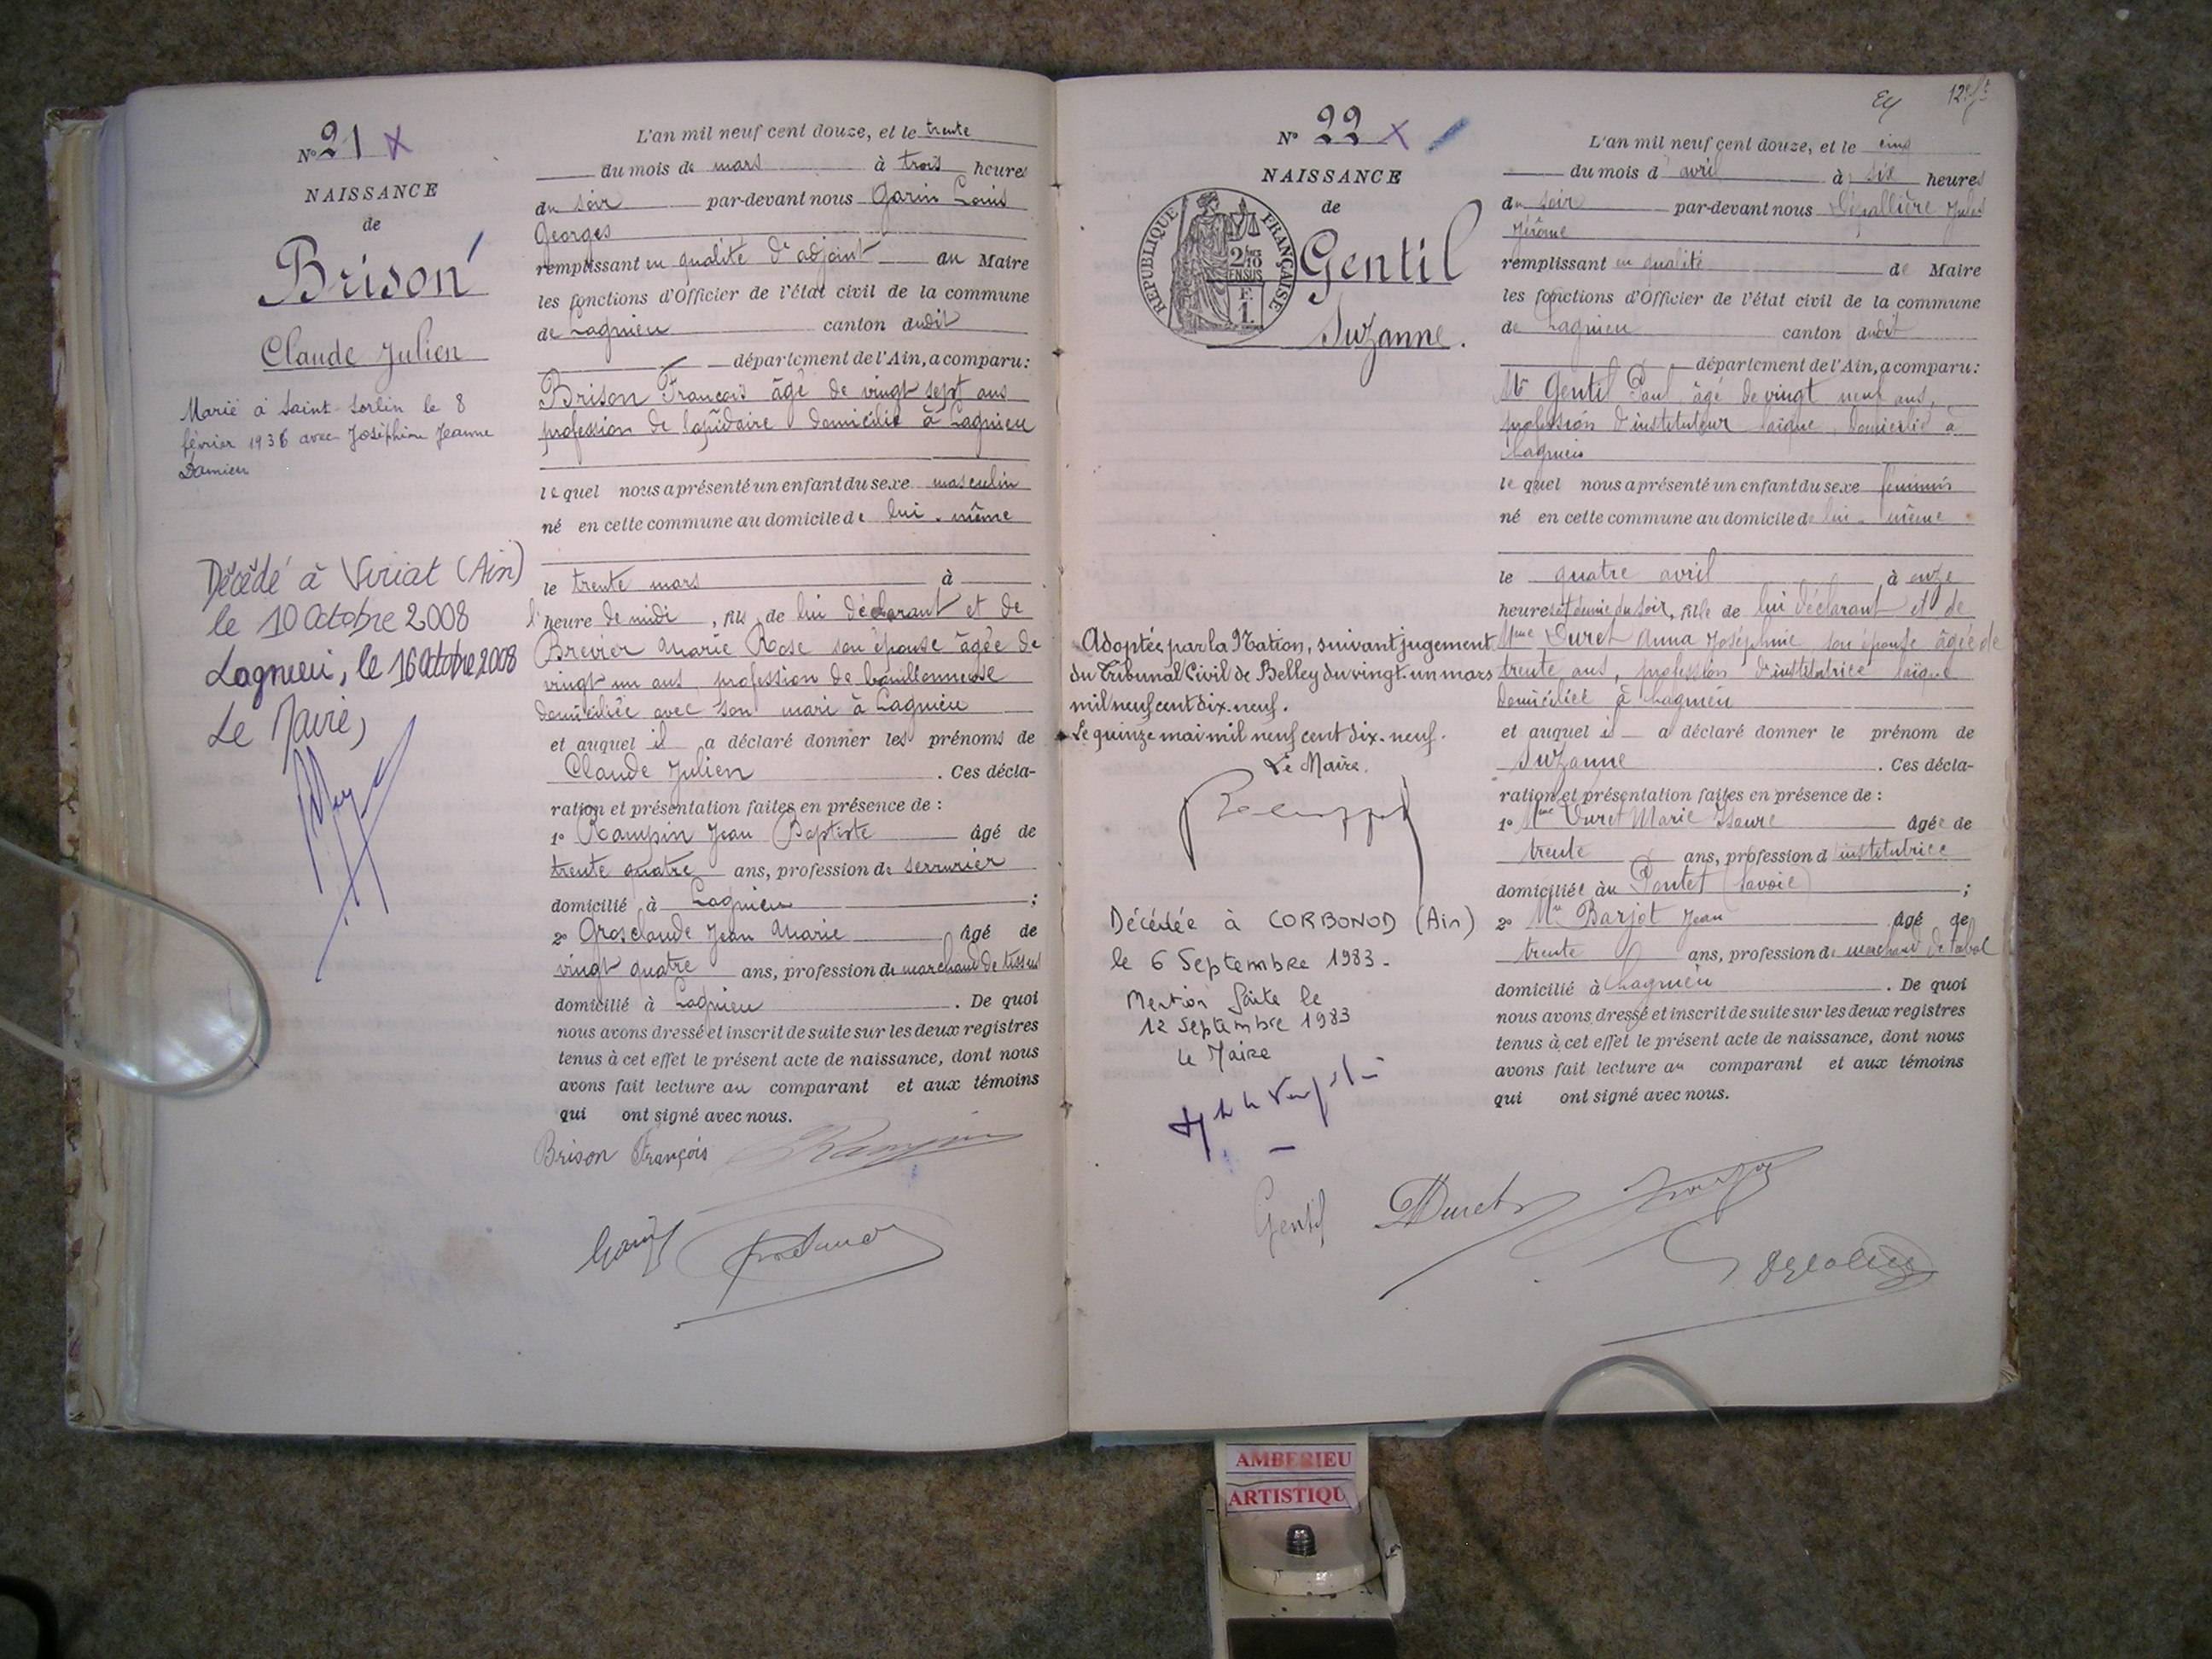 N° 21 X
NAISSANCE
de
Brison
Claude Julien
Marié à Saint Sorlin le 8
février 1936 avec Joséphine Jeanne
Damien
Décédé à Viriat (Ain)
le 10 Octobre 2008
Lagnieu, le 16 Octobre 2008
Le Maire,
L'an mil neuf cent douze, et le trente
du mois de mars à trois heures
du soir par-devant nous Garin Louis
Georges
remplissant en qualité d'adjoint au Maire
les fonctions d'Officier de l'état civil de la commune
de Lagnieu canton dudit
département de l'Ain, a comparu:
Brison François âgé de vingt sept ans
profession de lapidaire domicilié à Lagnieu
lequel nous a présenté un enfant du sexe masculin
né en cette commune au domicile de lui-même
le trente mars à
l'heure de midi, fils de lui déclarant et de
Brevier Marie Rose son épouse âgée de
vingt un ans profession de
domiciliée avec son mari à Lagnieu
et auquel il a déclaré donner les prénoms de
Claude Julien. Ces décla-
ration et présentation faites en présence de :
1° Rampin Jean Baptiste âgé de
trente quatre ans, profession de serrurier
domicilié à Lagnieu ;
2° Grosclaude Jean Marie âgé de
vingt quatre ans, profession de marchand de tissus
domicilié à Lagnieu. De quoi
nous avons dressé et inscrit de suite sur les deux registres
tenus à cet effet le présent acte de naissance, dont nous
avons fait lecture au comparant et aux témoins
qui ont signé avec nous.
Brison François Rampin
Garin Grosclaude
N° 22 X
NAISSANCE
de
RÉPUBLIQUE FRANÇAISE
2/10
EN SUS
F.
1.
Gentil
Suzanne.
Adoptée par la Nation, suivant jugement
du Tribunal Civil de Belley du vingt-un mars
mil neuf cent dix-neuf.
Le quinze mai mil neuf cent dix-neuf.
Le Maire.
Décédée à CORBONOD (Ain)
le 6 Septembre 1983-
Mention faite le
12 Septembre 1983
Le Maire
L'an mil neuf cent douze, et le cinq
du mois d'avril à six heures
du soir par-devant nous Jules
Jérôme
remplissant en qualité de Maire
les fonctions d'Officier de l'état civil de la commune
de Lagnieu canton dudit
département de l'Ain, a comparu:
Mr Gentil Paul âgé de vingt neuf ans,
profession d'instituteur laïque, domicilié à
Lagnieu
lequel nous a présenté un enfant du sexe féminin
né en cette commune au domicile de lui-même
le quatre avril, à onze
heures et demie du soir, fille de lui déclarant et de
Mme Duret Anna Joséphine son épouse âgée de
trente ans, profession d'institutrice laïque
domiciliée à Lagnieu
et auquel il a déclaré donner le prénom de
Suzanne. Ces décla-
ration et présentation faites en présence de :
1° Mme Duret Marie Isaure âgée de
trente ans, profession d'institutrice
domiciliée au Pontet (Savoie) ;
2° Mr Barjot Jean âgé de
trente ans, profession de marchand de
domicilié à Lagnieu. De quoi
nous avons dressé et inscrit de suite sur les deux registres
tenus à cet effet le présent acte de naissance, dont nous
avons fait lecture au comparant et aux témoins
qui ont signé avec nous.
Gentil Duret
AMBERIEU
ARTISTIQU